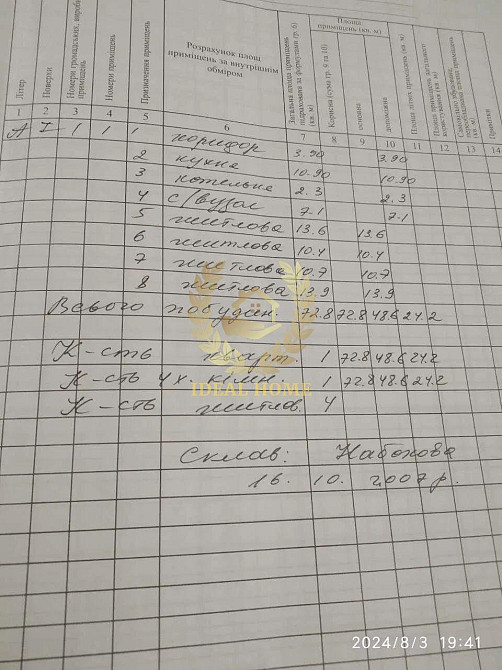 Літер
Поверхи
Номери громадських, виробн. приміщень
Номери приміщень
Призначення приміщень
Розрахунок площ приміщень за внутрішнім обміром
Загальна площа приміщень підрахована за формулами гр. 6) (кв. м)
Площа приміщень (кв. м)
Корисна (сума гр. 9 та 10)
основна
допоміжна
Площа літніх приміщень (кв. м)
Площа приміщень загального користування (кв. м)
Примітки
1 2 3 4 5 6 7 8 9 10 11 12 13 14
А І 1 1 1 коридор 3.90 3.90
2 кухня 10.90 10.90
3 котельня 2.3 2.3
4 с/вузол 7.1 7.1
5 житлова 13.6 13.6
6 житлова 10.4 10.4
7 житлова 10.7 10.7
8 житлова 13.9 13.9
Всього по будин. 72.8 72.8 48.6 24.2
К-сть кварт. 1 72.8 48.6 24.2
К-сть 4х кімн. 1 72.8 48.6 24.2
IDEAL HOME
К-сть житлов. 4
Склав: Набокова
16. 10. 2007 р.
2024/8/3 19:41